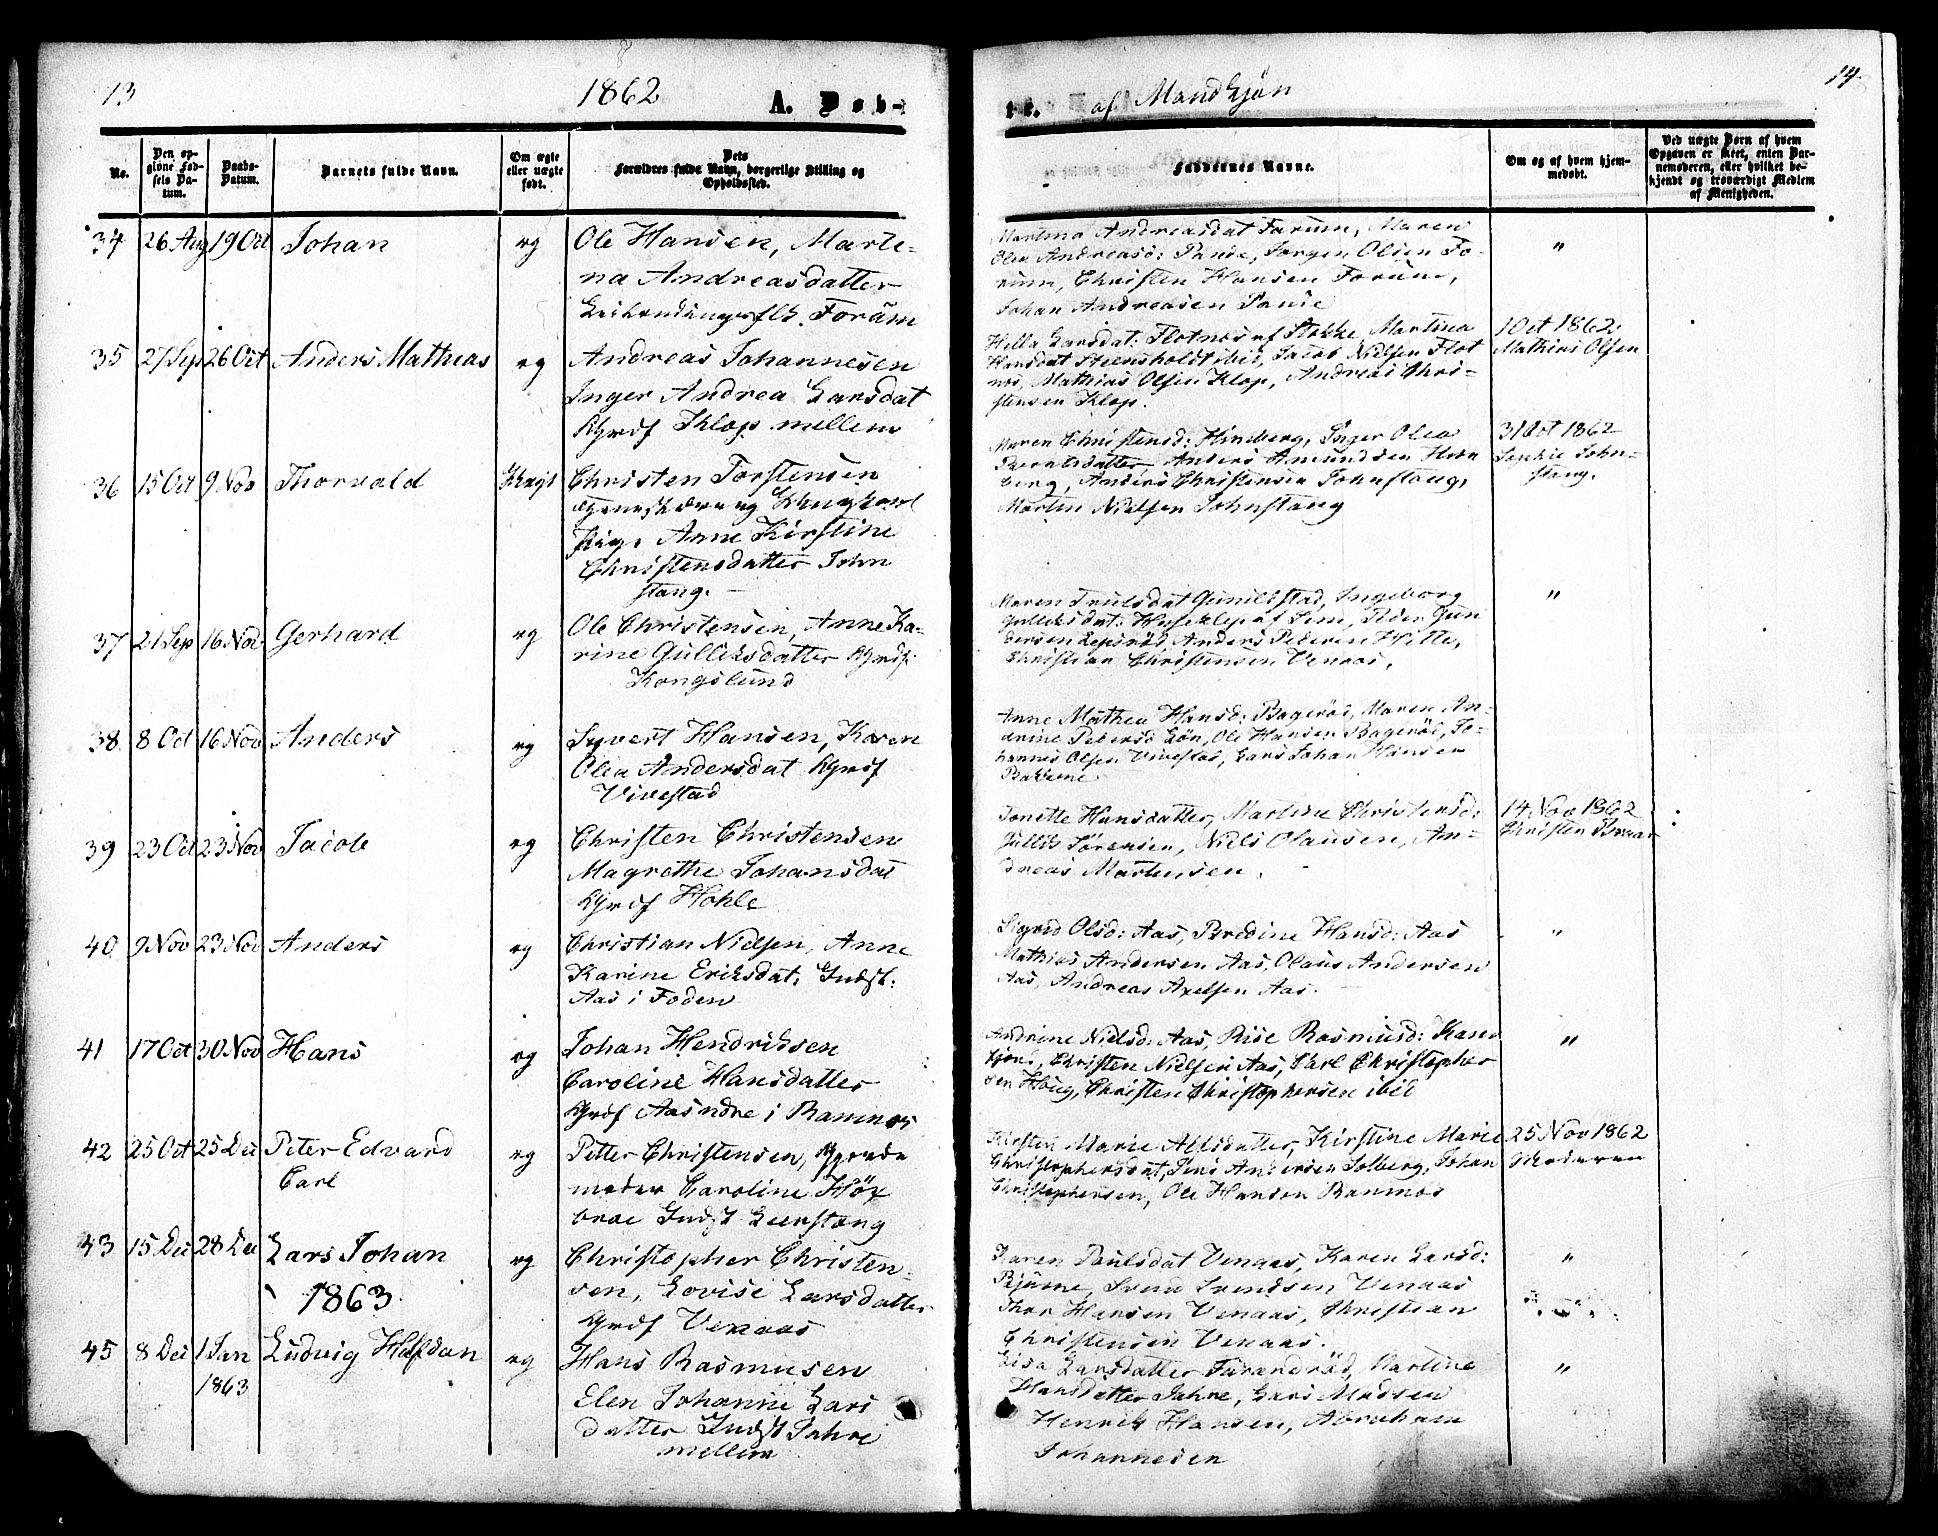 13
1862
A. Døb-
te. af Mandkjøn
14
No.
Den op-
givne Fød-
sels Da-
tum.
Daabs-
Datum.
Barnets fulde Navn.
Om ægte
eller uægte
født.
Dets
Forældres fulde Navn, borgerlige Stilling og
Opholdssted.
Faddernes Navne.
Om og af hvem hjem-
medøbt.
Ved uægte Børn af hvem
Opgaven er skeet, enten Bar-
nemoderen, eller hvilket be-
kjendt og troværdigt Medlem
af Menigheden.
34 26 Aug 19 Oct Johan æg
Ole Hansen, Marte-
na Andreasdatter
Forum
Martina Andreasdat Forum, Maren
Olea Andreasd: Pande, Jørgen Olsen Fo-
rum, Christen Hansen Forum,
Johan Andreasen Pande
"
35 27 Sep 26 Oct Anders Mathias æg
Andreas Johannesen
Inger Andrea Larsdat
Klop mellem
Helle Larsdat: Flotnes af Stokke, Martina
Hansdat ibid, Jacob Nielsen Flot
nes, Mathias Olsen Klop, Andreas Chri-
stensen Klop.
1 Oct 1862
Mathias Olsen
36 15 Oct 9 Nov Thorvald
Christen Torstensen
Pige Anne Kirstine
Christensdatter John
stang. -
Maren Christensd: Hinberg, Inger Olea
Berntsdatter Anders Amundsen Hvin
berg, Anders Christensen Johnstang,
Martin Nielsen Johnstang
31 Oct 1862
Sophie John-
stang.
37 21 Sep 16 Nov Gerhard æg
Ole Christensen, Anne Ka-
rine Gulliksdatter
Kongslund
Maren Trulsdat Gunildstad, Ingeborg
Gulliksdat: Huseklep af Sem, Peder Gun
dersen Anders Pedersen Hvitte,
Christian Christensen Venaas.
"
38 8 Oct 16 Nov Anders æg
Syvert Hansen, Karen
Olea Andersdat
Vivestad
Anne Mathea Hansd: Bagerød, Maren An-
drine Pedersd Ole Hansen Bagerød, Jo-
hannes Olsen Vivestad, Lars Johan Hansen
Bakkene
39 23 Oct 23 Nov Jacob æg
Christen Christensen
Magrethe Johansdat
Hohle
Jonette Hansdatter, Martine Christensd:
Gullik Sørensen, Niels Olausen, An-
dreas Martinsen.
14 Nov 1862
Christen
40 9 Nov 23 Nov Anders æg
Christian Nielsen, Anne
Karine Eriksdat, Indst:
Aas i Foden
Sigrid Olsd: Aas, Bredine Hansd: Aas
Mathias Andersen Aas, Olaus Andersen
Aas, Andreas Axelsen Aas.
"
41 17 Oct 30 Nov Hans æg
Johan Hendriksen
Caroline Hansdatter
Aasndre i Ramnæs
Andrine Nielsd: Aas, Rise Rasmusd:
Christen Nielsen Aas, Carl Christopher
sen Houg, Christen Christophersen ibid
"
42 25 Oct 25 Dec Peter Edvard
Carl
æg
Petter Christensen,
moder Caroline Høy
broe Indst Leerstang
Kirsten Marie Alfsdatter, Kirstine Marie
Christophersdat, Jens Andersen Solberg, Johan
Christophersen, Ole Hansen Ramnæs
25 Nov 1862
Moderen
43 15 Dec 28 Dec Lars Johan æg
Christopher Christen-
sen, Lovise Larsdatter
Venaas
Karen Paulsdat Venaas, Karen Larsd:
Svend Svendsen Venaas
Thor Hansen Venaas, Christian
Christensen Venaas.
"
1863
45 8 Dec 1 Jan
1863
Ludvig Halfdan æg
Hans Rasmusen
Elen Johanne Lars
datter Indst Jahre
mellem
Lisa Larsdatter Farandrød, Martine
Hansdatter Jahre, Lars Madsen
Henrik Hansen, Abraham
Johannesen
"